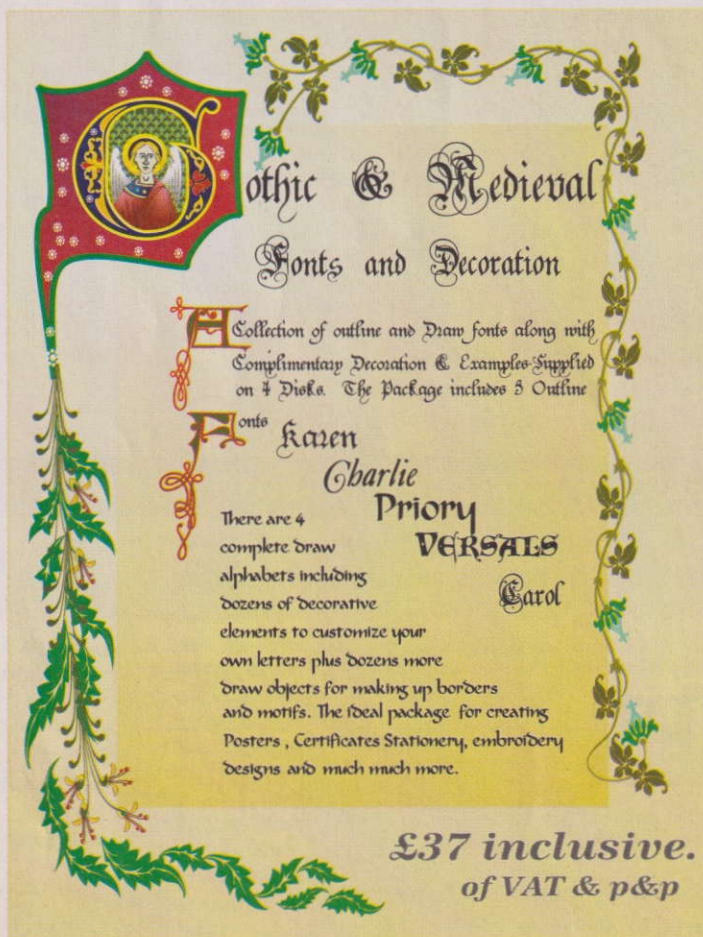 Gothic & Medieval
Fonts and Decoration
A Collection of outline and Draw fonts along with
Complimentary Decoration & Examples Supplied
on 4 Disks. The Package includes 5 Outline
Fonts
Karen
Charlie
Priory
VERSALS
Carol
There are 4
complete draw
alphabets including
dozens of decorative
elements to customize your
own letters plus dozens more
draw objects for making up borders
and motifs. The ideal package for creating
Posters , Certificates Stationery, embroidery
designs and much much more.
£37 inclusive.
of VAT & p&p